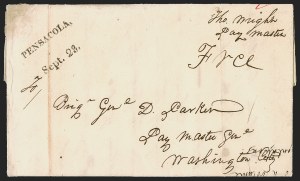 PENSACOLA,
Sept. 23,
Tho Wright
Pay master
Free
Brigr Genl D. Parker
Pay Master Genl
Washington City